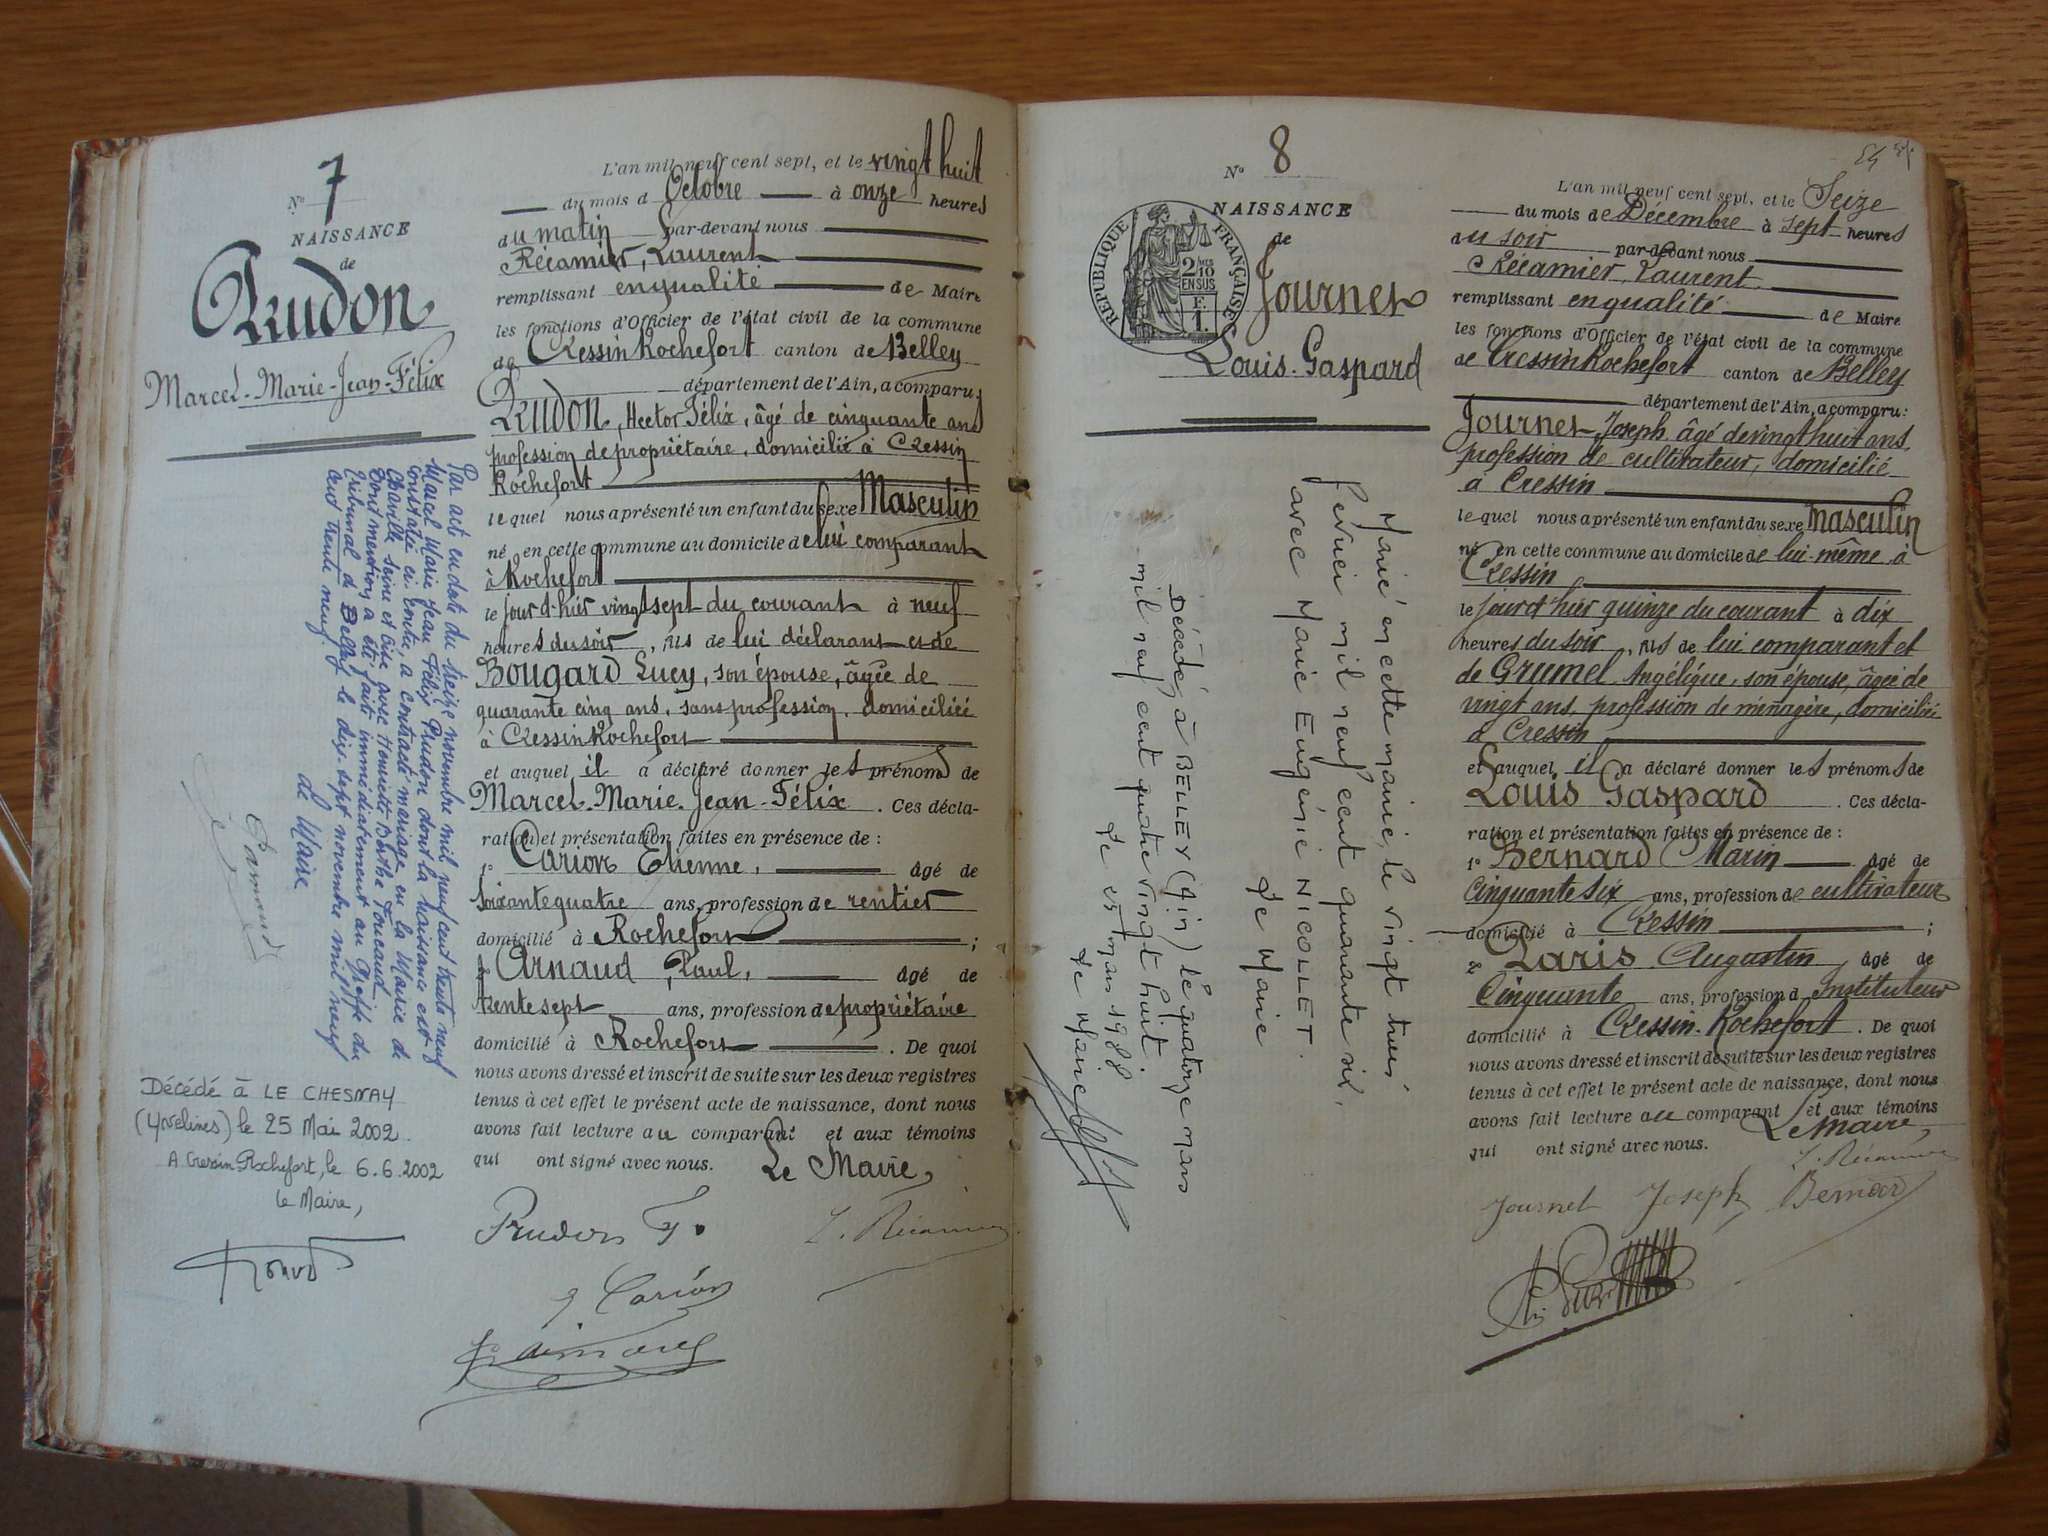 N° 7
NAISSANCE
de
Prudon
Marcel-Marie-Jean-Félix
Par acte en date du treize novembre mil neuf cent trente neuf
Marcel Marie Jean Félix Prudon dont la naissance est
constatée ci-contre, a contracté mariage en la Mairie de
Chaville Seine et Oise avec Henriette Berthe Foucaud
Dont mention a été faite immédiatement au Greffe du
Tribunal de Belley le dix-sept novembre mil neuf
cent trente neuf
Le Maire
Décédé à LE CHESNAY
(Yvelines) le 25 Mai 2002
A Cressin-Rochefort, le 6.6.2002
Le Maire,
L'an mil neuf cent sept, et le vingt huit
du mois d Octobre à onze heures
du matin par-devant nous
Récamier, Laurent
remplissant en qualité de Maire
les fonctions d'Officier de l'état civil de la commune
de Cressin Rochefort canton de Belley
département de l'Ain, a comparu:
PRUDON, Hector Félix, âgé de cinquante ans
profession de propriétaire, domicilié à Cressin
Rochefort
lequel nous a présenté un enfant du sexe Masculin
né en cette commune au domicile de lui comparant
à Rochefort
le jour d'hier vingt sept du courant à neuf
heures du soir, fils de lui déclarant et de
BOUGARD Lucy, son épouse, âgée de
quarante cinq ans, sans profession, domiciliée
à Cressin Rochefort
et auquel il a déclaré donner les prénoms de
Marcel-Marie-Jean-Félix. Ces décla-
ration et présentation faites en présence de:
1° Carion Etienne, âgé de
soixante quatre ans, profession de rentier
domicilié à Rochefort ;
2° Arnaud Paul, âgé de
trente sept ans, profession de propriétaire
domicilié à Rochefort. De quoi
nous avons dressé et inscrit de suite sur les deux registres
tenus à cet effet le présent acte de naissance, dont nous
avons fait lecture au comparant et aux témoins
qui ont signé avec nous. Le Maire,
Prudon F. L. Récamier
Carion
N° 8
NAISSANCE
de
RÉPUBLIQUE FRANÇAISE
2/10 EN SUS
F. 1.
Journet
Louis-Gaspard
Marié en cette mairie, le vingt trois
Janvier mil neuf cent quarante six,
avec Marie Eugénie NICOLLET.
Le Maire
Décédé, à BELLEY (Ain) le quatorze mars
mil neuf cent quatre vingt huit
Le 25 mars 1988
Le Maire
54
L'an mil neuf cent sept, et le Seize
du mois de Décembre à sept heures
du soir par-devant nous
Récamier, Laurent
remplissant en qualité de Maire
les fonctions d'Officier de l'état civil de la commune
de Cressin Rochefort canton de Belley
département de l'Ain, a comparu:
Journet Joseph, âgé de vingt huit ans,
profession de cultivateur, domicilié
à Cressin
lequel nous a présenté un enfant du sexe masculin
né en cette commune au domicile de lui-même, à
Cressin
le jour d'hier quinze du courant à dix
heures du soir, fils de lui comparant et
de Grumel Angélique, son épouse, âgée de
vingt ans, profession de ménagère, domiciliée
à Cressin
et auquel il a déclaré donner les prénoms de
Louis Gaspard. Ces décla-
ration et présentation faites en présence de:
1° Bernard Marin âgé de
Cinquante six ans, profession de cultivateur
domicilié à Cressin ;
2° Paris Augustin, âgé de
Cinquante ans, profession d Instituteur
domicilié à Cressin-Rochefort. De quoi
nous avons dressé et inscrit de suite sur les deux registres
tenus à cet effet le présent acte de naissance, dont nous
avons fait lecture au comparant et aux témoins
qui ont signé avec nous. Le Maire,
L. Récamier
Journet Joseph Bernard